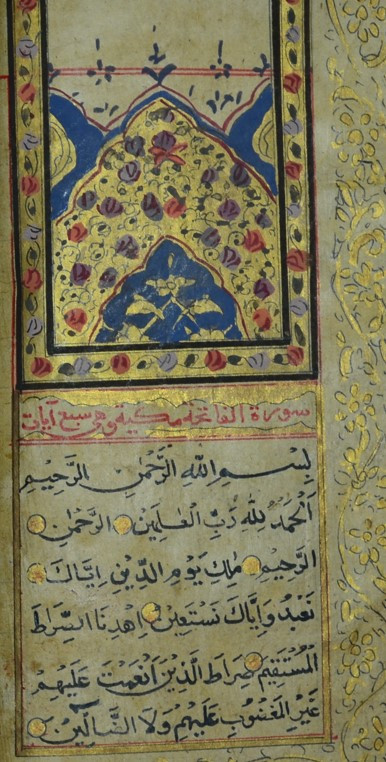 سورة الفاتحة مكية وهي سبع آيات
بِسْمِ اللهِ الرَّحْمٰنِ الرَّحِيمِ
اَلْحَمْدُ لِلّٰهِ رَبِّ الْعٰلَمِينَ الرَّحْمٰنِ
الرَّحِيمِ مٰلِكِ يَوْمِ الدِّينِ اِيَّاكَ
نَعْبُدُ وَاِيَّاكَ نَسْتَعِينُ اِهْدِنَا الصِّرَاطَ
الْمُسْتَقِيمَ صِرَاطَ الَّذِينَ اَنْعَمْتَ عَلَيْهِمْ
غَيْرِ الْمَغْضُوبِ عَلَيْهِمْ وَلَا الضَّالِّينَ